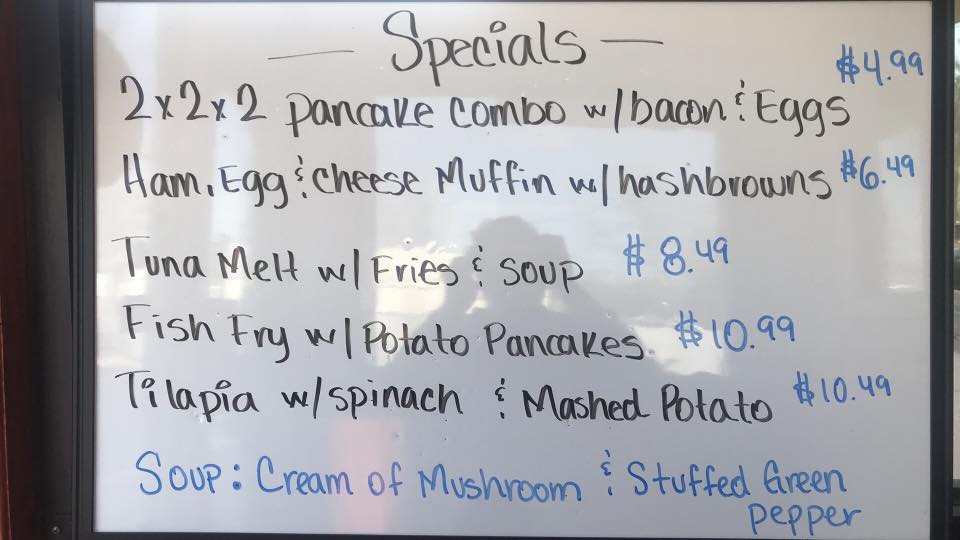 — Specials —
2x2x2 pancake combo w/bacon & Eggs $4.99
Ham, Egg & cheese Muffin w/hashbrowns $6.49
Tuna Melt w/ Fries & soup $8.49
Fish Fry w/Potato Pancakes $10.99
Tilapia w/spinach & Mashed Potato $10.49
Soup: Cream of Mushroom & Stuffed Green
pepper